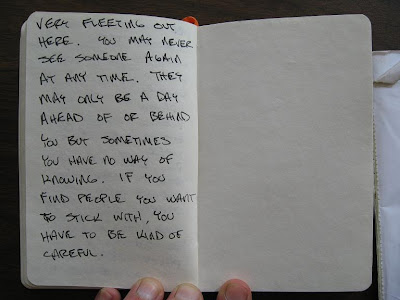 VERY FLEETING OUT
HERE. YOU MAY NEVER
SEE SOMEONE AGAIN
AT ANY TIME. THEY
MAY ONLY BE A DAY
AHEAD OF OR BEHIND
YOU BUT SOMETIMES
YOU HAVE NO WAY OF
KNOWING. IF YOU
FIND PEOPLE YOU WANT
TO STICK WITH, YOU
HAVE TO BE KIND OF
CAREFUL.